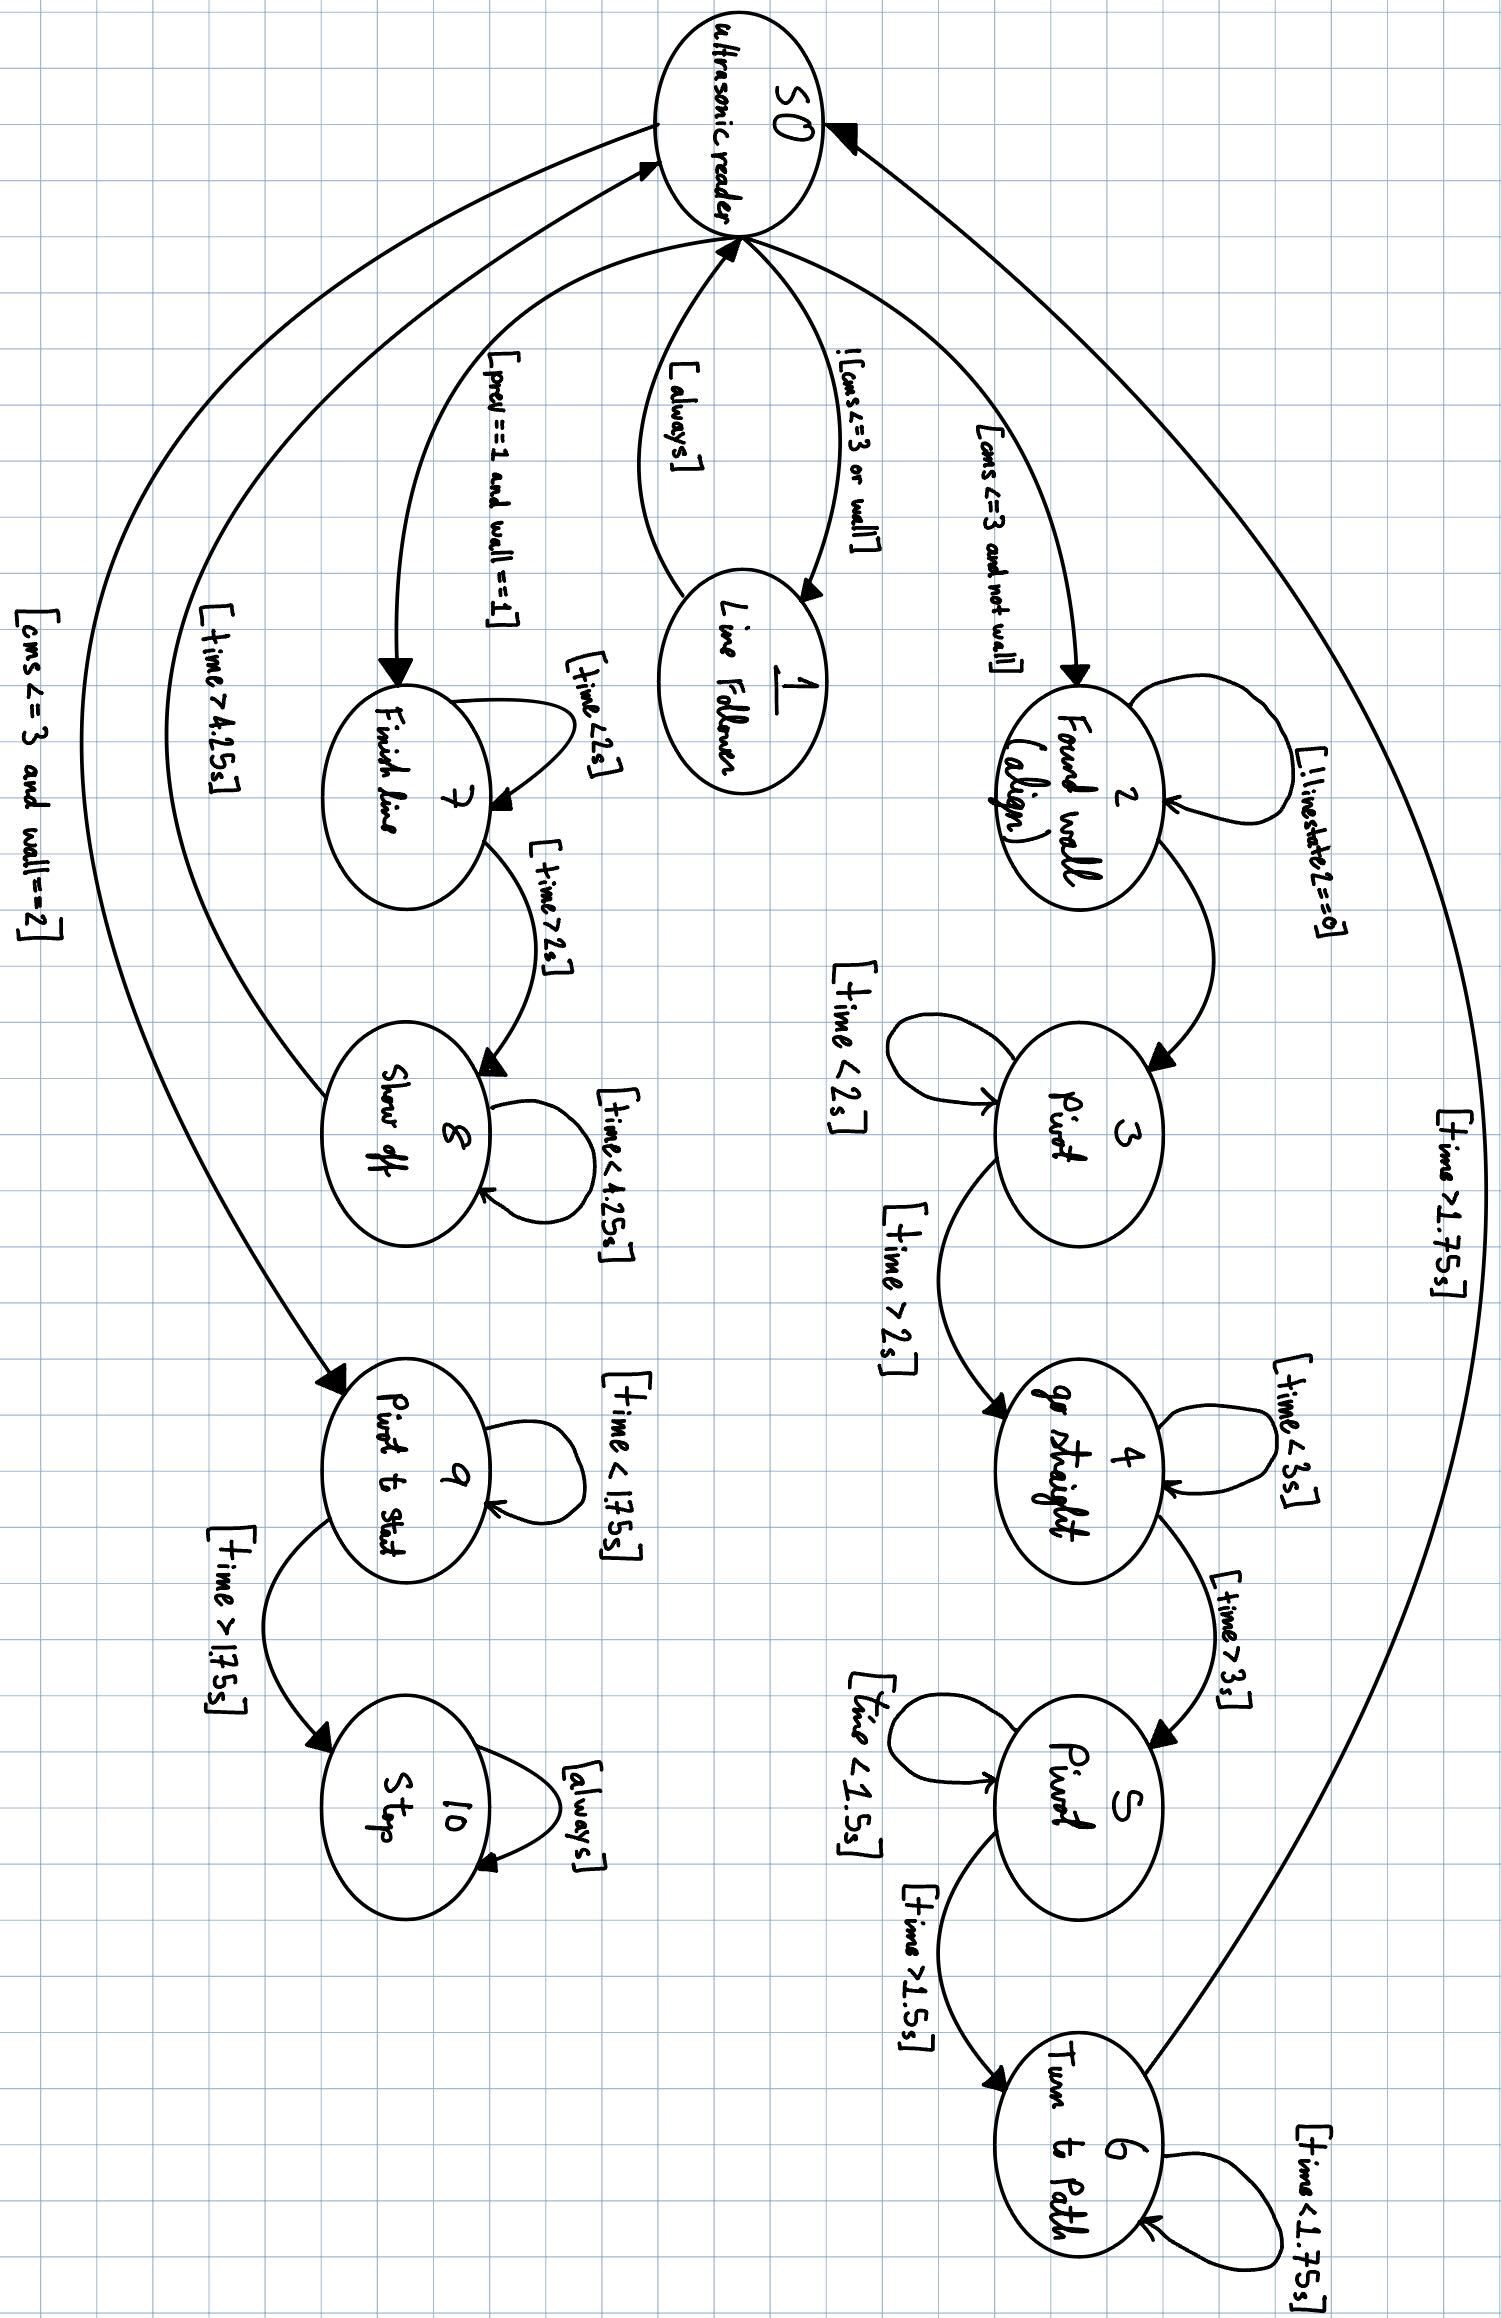 [time>1.75s]
[!linestate2==0]
[time<3s]
[time<1.75s]
[time>3s]
2
Found wall
(align)
3
Pivot
4
go straight
5
Pivot
6
Turn to Path
[cms<=3 and not wall]
[time>2s]
[time<2s]
[time>1.5s]
[time<1.5s]
![cms<=3 or wall]
S0
ultrasonic reader
1
Line Follower
[always]
[time<2s]
[time>2s]
[time<4.25s]
[time<1.75s]
[always]
[prev==1 and wall==1]
7
Finish line
8
Show off
9
Pivot to Start
10
Stop
[time>4.25s]
[time>1.75s]
[cms<=3 and wall==2]